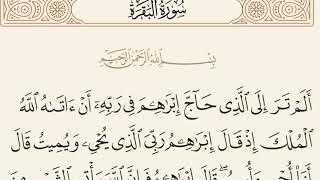 سُورَةُ البَقَرَةِ
بِسْمِ اللَّهِ الرَّحْمَٰنِ الرَّحِيمِ
أَلَمْ تَرَ إِلَى ٱلَّذِى حَآجَّ إِبْرَٰهِـۧمَ فِى رَبِّهِۦٓ أَنْ ءَاتَىٰهُ ٱللَّهُ
ٱلْمُلْكَ إِذْ قَالَ إِبْرَٰهِـۧمُ رَبِّىَ ٱلَّذِى يُحْىِۦ وَيُمِيتُ قَالَ